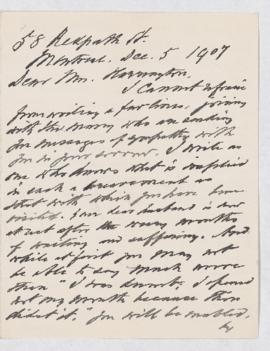 58 Redpath St.
Montreal Dec. 5 1907
Dear Mrs. Harrington,
I cannot refrain
from writing a few lines, joining
with the many who are sending
you messages of sympathy with
you in your sorrow. I write as
one who knows what is implied
in such a bereavement as
that with which you have been
visited. Your dear husband is now
at rest after the weary months
of waiting and suffering. And
while at first you may not
be able to say much more
than "I was dumb, I opened
not my mouth because thou
didst it." you will be enabled,
by